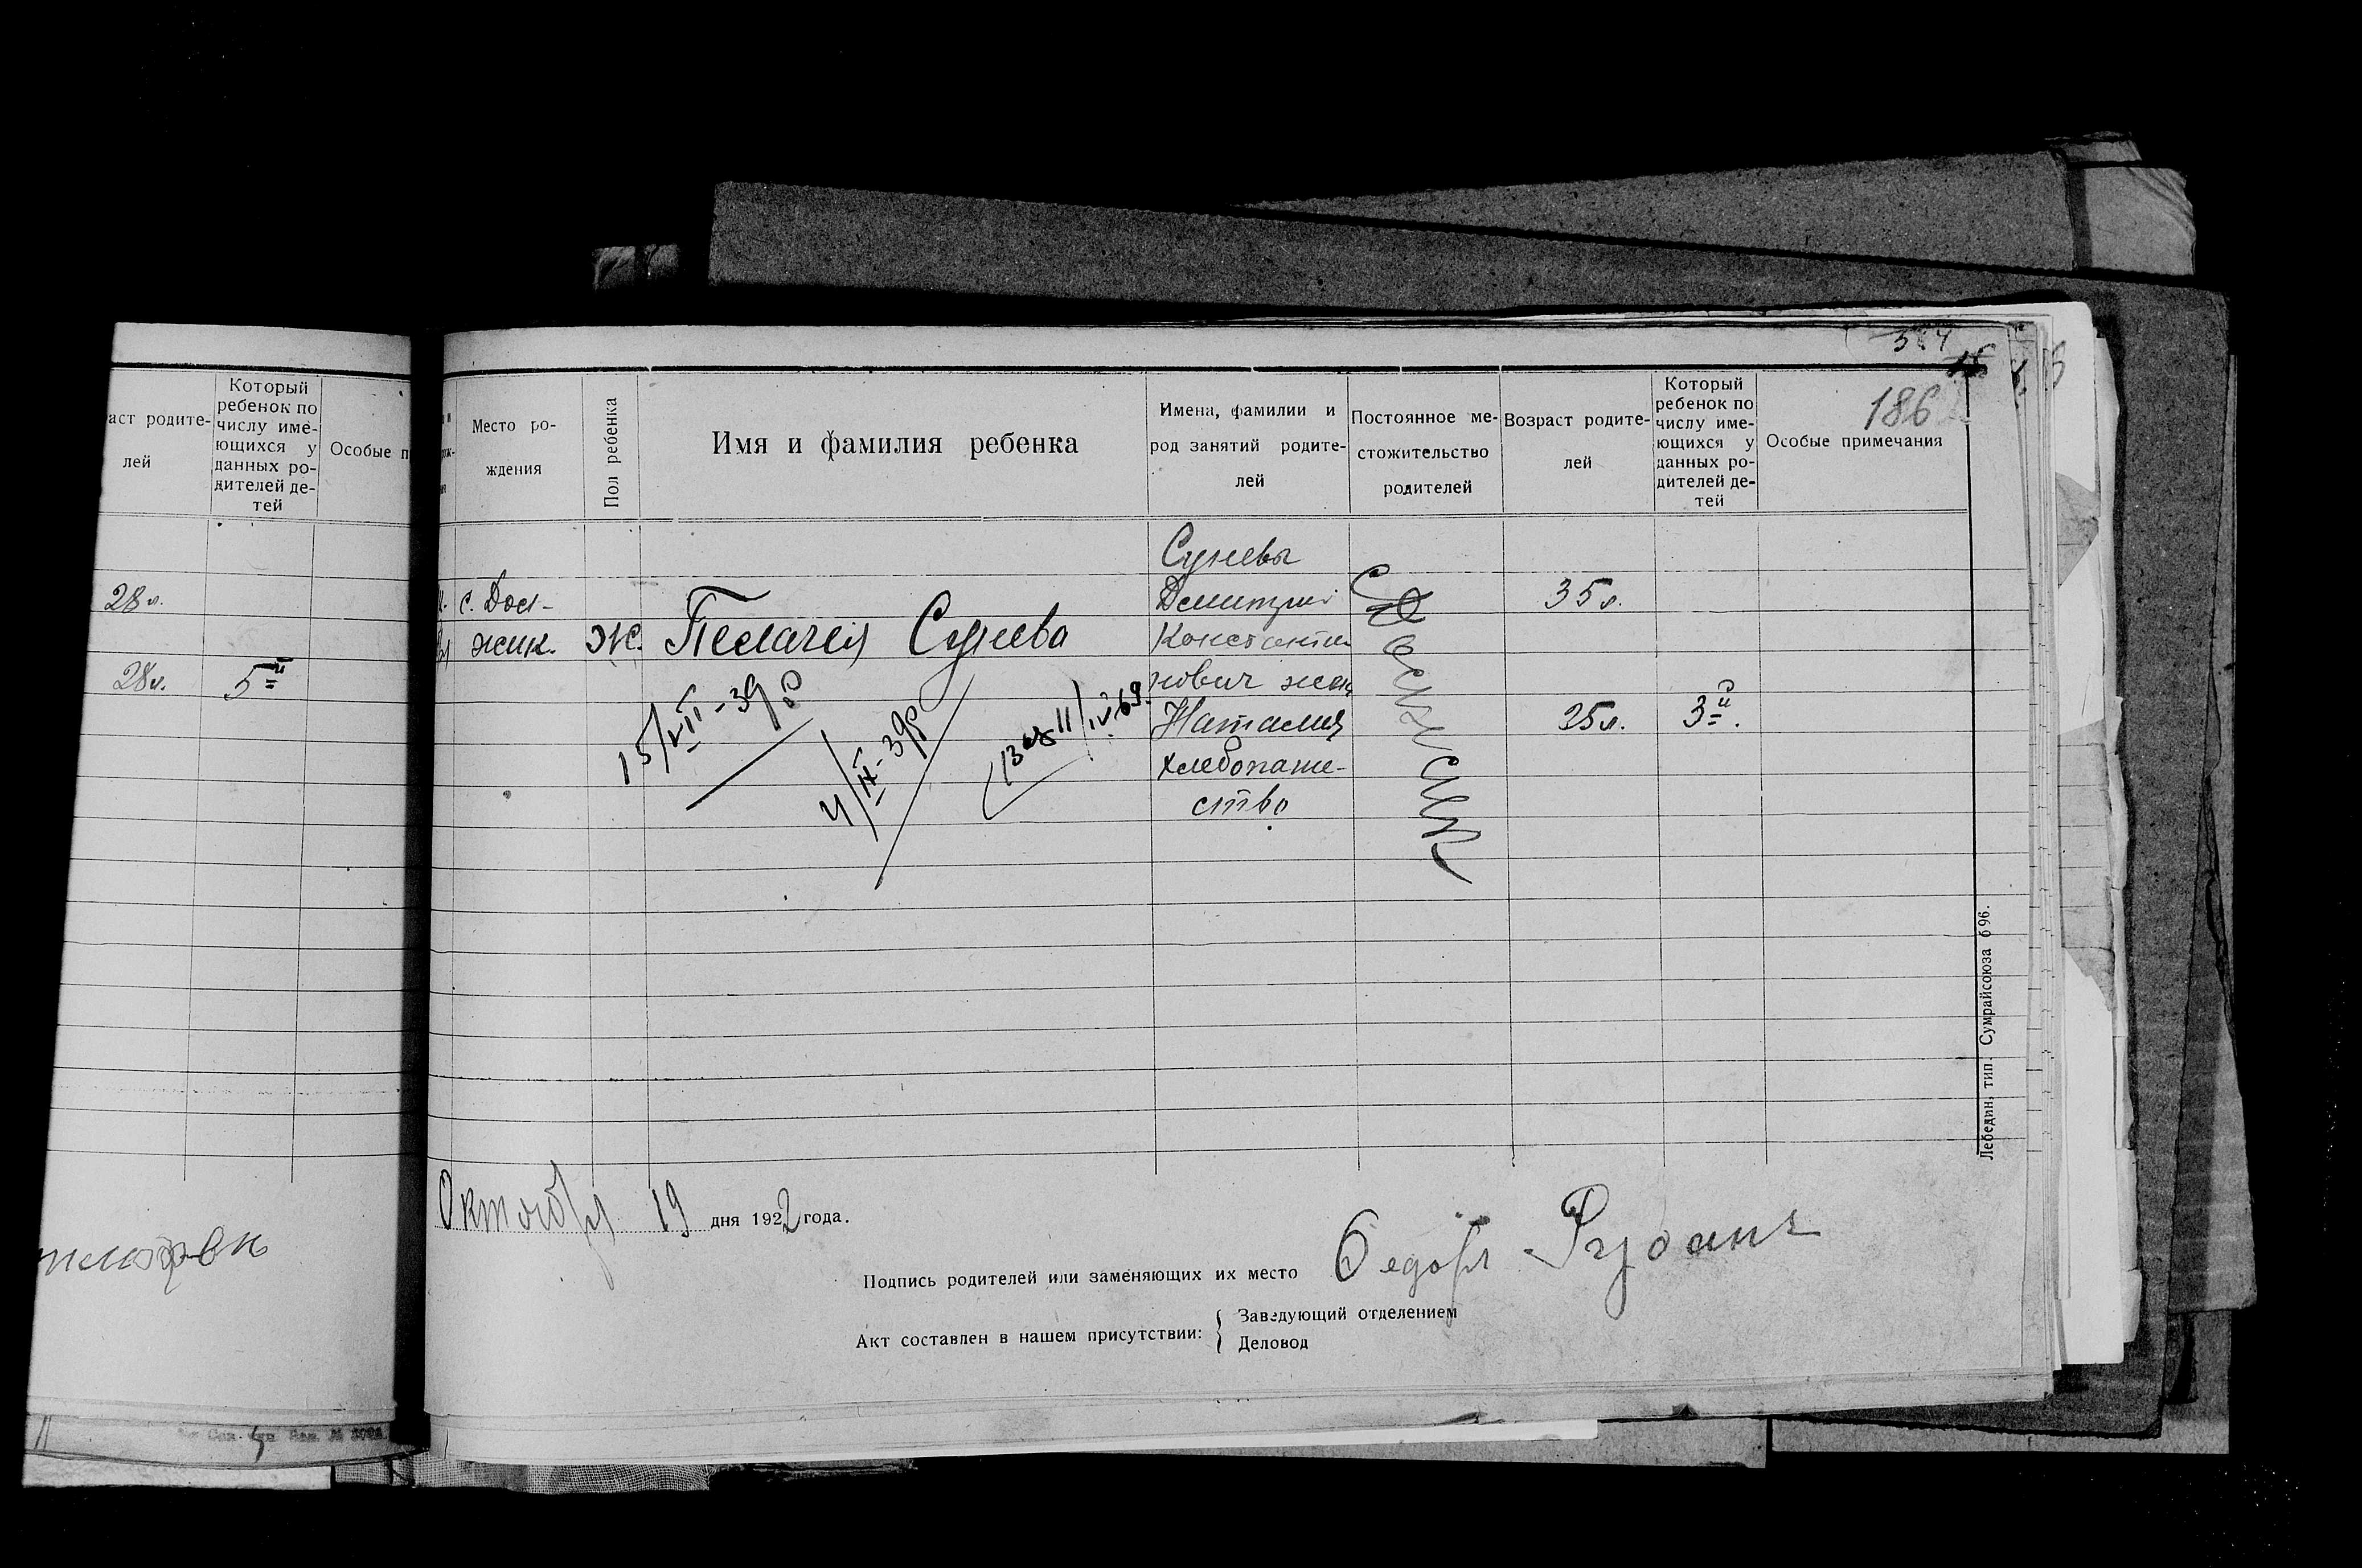 аст родите-
лей
Который
ребенок по
числу име-
ющихся у
данных ро-
дителей де-
тей
Особые п
28 л.
28 л.
5й
186
Место ро-
ждения
Пол ребенка
Имя и фамилия ребенка
Имена, фамилии и
род занятий родите-
лей
Постоянное ме-
стожительство
родителей
Возраст родите-
лей
Который
ребенок по
числу име-
ющихся у
данных ро-
дителей де-
тей
Особые примечания
с. Дол-
жик.
Ж.
Пелагея Сунева
Суневы
Демитрий
Константи
нович жена
Наталия
хлебопаше-
ство
35 л.
25 л.
3й.
15/VIII-39 р
4/IX-39р
Октября 19 дня 1922 года.
Подпись родителей или заменяющих их место
Акт составлен в нашем присутствии:
Заведующий отделением
Деловод
Лебедин, тип. Сумрайсоюза 696.